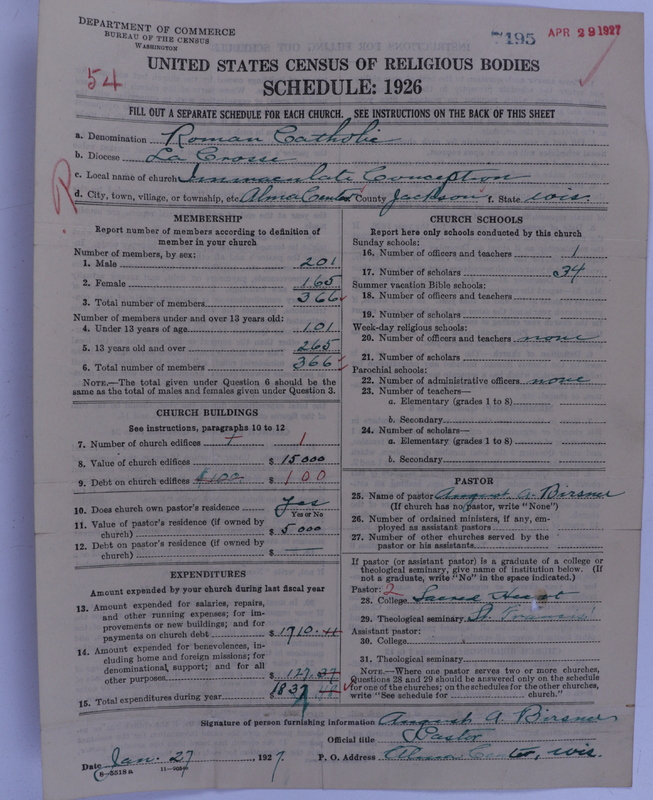 DEPARTMENT OF COMMERCE
BUREAU OF THE CENSUS
WASHINGTON
7195 APR 29 1927
54
UNITED STATES CENSUS OF RELIGIOUS BODIES
SCHEDULE: 1926
FILL OUT A SEPARATE SCHEDULE FOR EACH CHURCH. SEE INSTRUCTIONS ON THE BACK OF THIS SHEET
a. Denomination Roman Catholic
b. Diocese La Crosse
c. Local name of church Immaculate Conception
R
d. City, town, village, or township, etc. Alma Center County Jackson State Wis.
MEMBERSHIP
Report number of members according to definition of
member in your church
Number of members, by sex:
1. Male 201
2. Female 165
3. Total number of members 366
Number of members under and over 13 years old:
4. Under 13 years of age 101
5. 13 years old and over 265
6. Total number of members 366
NOTE.—The total given under Question 6 should be the
same as the total of males and females given under Question 3.
CHURCH BUILDINGS
See instructions, paragraphs 10 to 12
7. Number of church edifices 1
8. Value of church edifices $ 15000
9. Debt on church edifices $100 $ 100
10. Does church own pastor's residence Yes
Yes or No
11. Value of pastor's residence (if owned by
church) $ 5000
12. Debt on pastor's residence (if owned by
church) $ —
EXPENDITURES
Amount expended by your church during last fiscal year
13. Amount expended for salaries, repairs,
and other running expenses; for im-
provements or new buildings; and for
payments on church debt $ 1710.
14. Amount expended for benevolences, in-
cluding home and foreign missions; for
denominational support; and for all
other purposes $ 127.37
15. Total expenditures during year $ 1837
CHURCH SCHOOLS
Report here only schools conducted by this church
Sunday schools:
16. Number of officers and teachers 1
17. Number of scholars 34
Summer vacation Bible schools:
18. Number of officers and teachers
19. Number of scholars
Week-day religious schools:
20. Number of officers and teachers none
21. Number of scholars
Parochial schools:
22. Number of administrative officers none
23. Number of teachers—
a. Elementary (grades 1 to 8)
b. Secondary
24. Number of scholars—
a. Elementary (grades 1 to 8)
b. Secondary
PASTOR
25. Name of pastor August A. Birsner
(If church has no pastor, write "None")
26. Number of ordained ministers, if any, em-
ployed as assistant pastors
27. Number of other churches served by the
pastor or his assistants
If pastor (or assistant pastor) is a graduate of a college or
theological seminary, give name of institution below. (If
not a graduate, write "No" in the space indicated.)
Pastor: 2
28. College Sacred Heart
29. Theological seminary St. Francis
Assistant pastor:
30. College
31. Theological seminary
NOTE.—Where one pastor serves two or more churches,
Questions 28 and 29 should be answered only on the schedule
for one of the churches; on the schedules for the other churches,
write "See schedule for church."
Signature of person furnishing information August A. Birsner
Official title Pastor
Date Jan. 27, 1927. P. O. Address Alma Center, Wis.
8—5518a